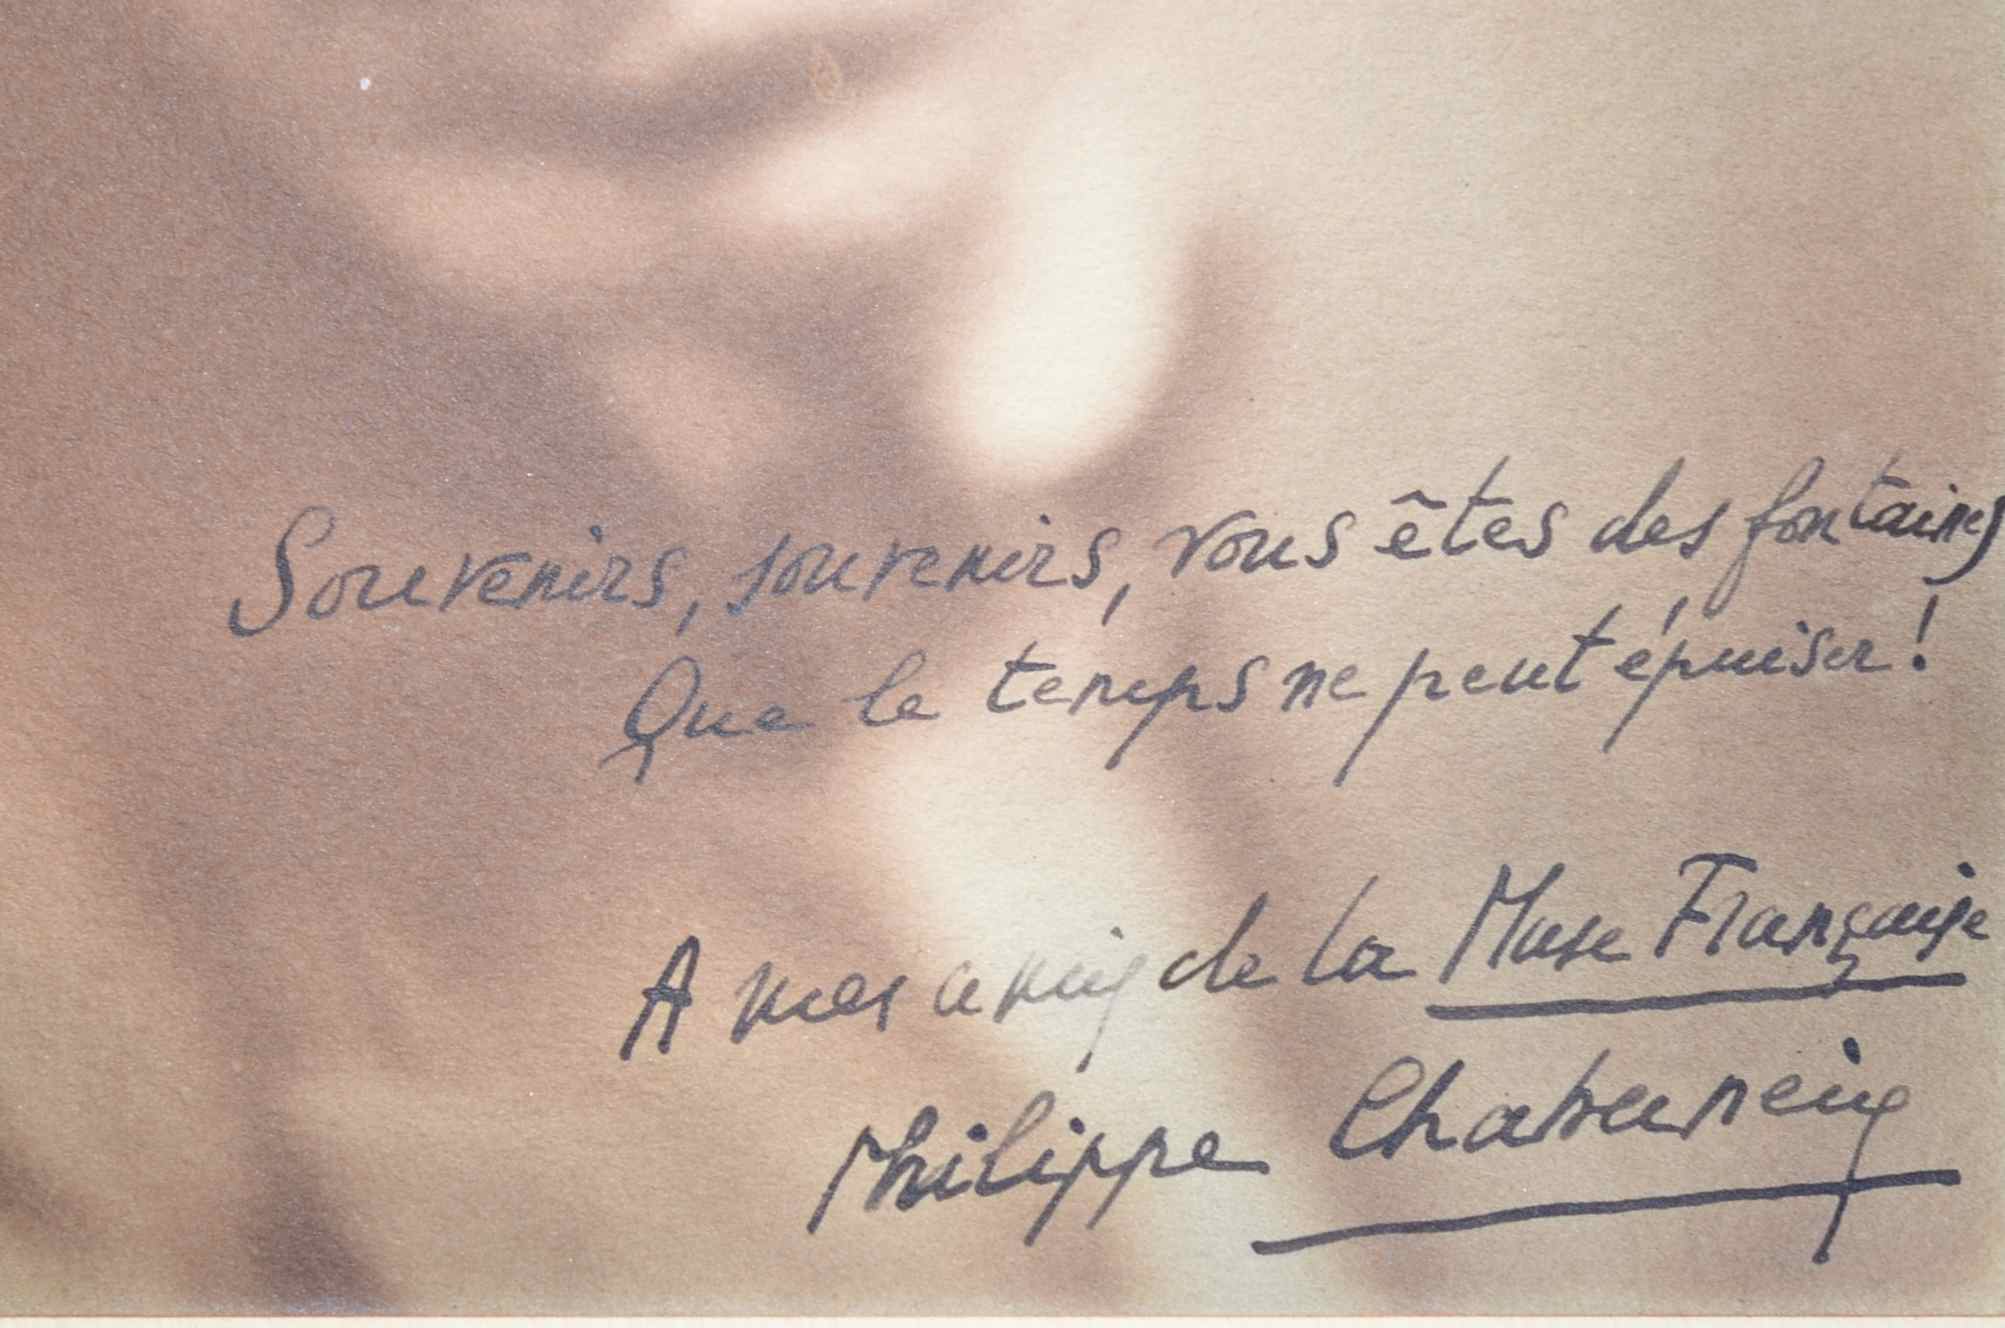 Souvenirs, souvenirs, vous êtes des fontaines
Que le temps ne peut épuiser !
A mes amis de la Muse Française
Philippe Chabaneix